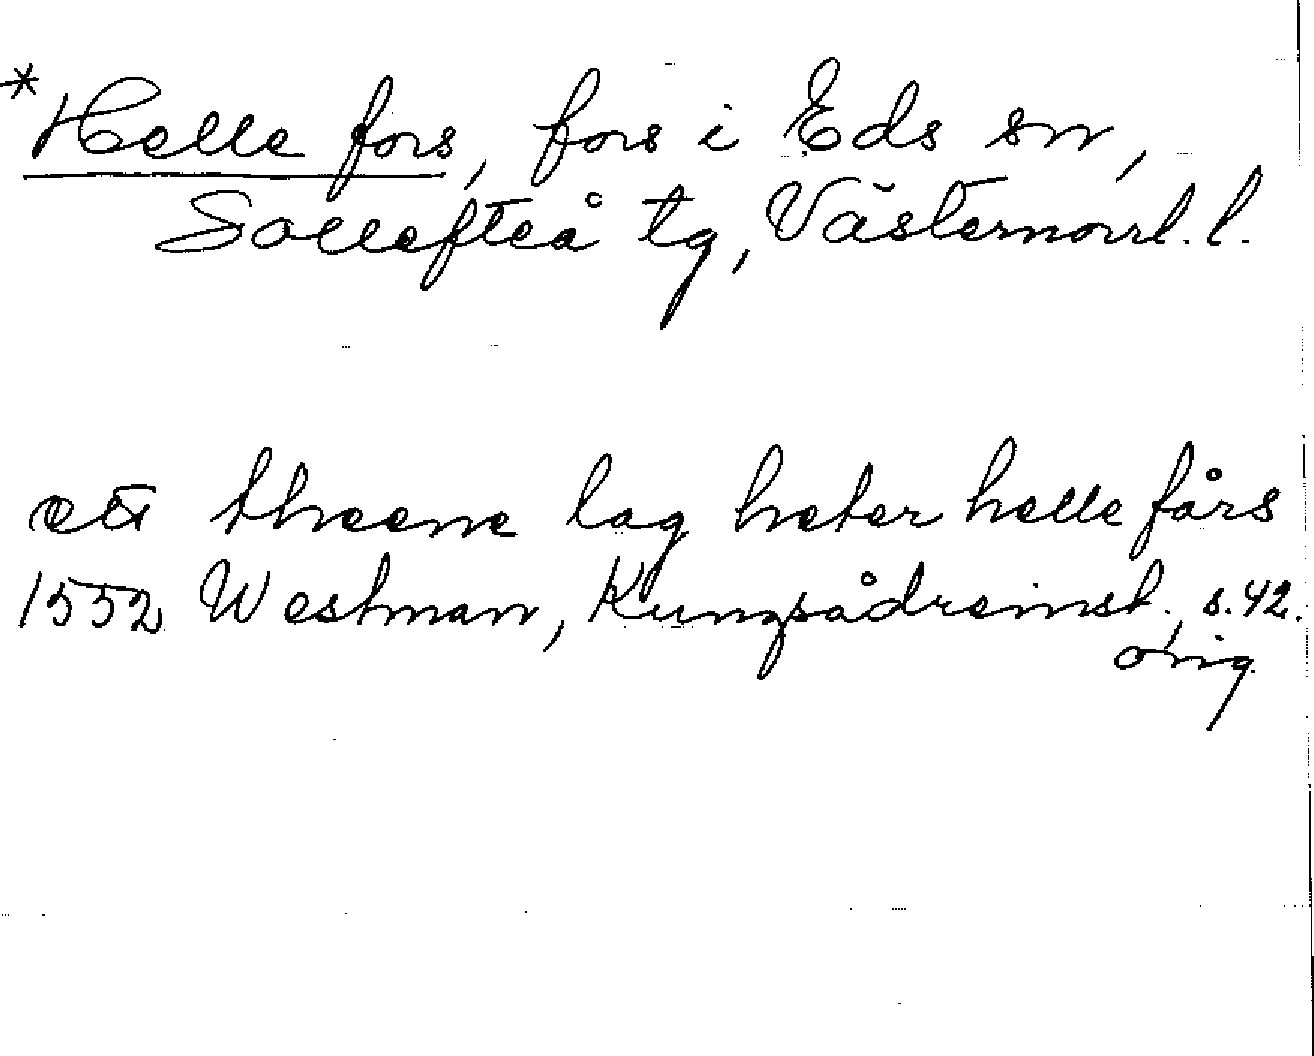 *Helle fors, fors i Eds sn,
Sollefteå tg, Västernorrl. l.
ett theene lag heter helle fårs
1552 Westman, Kungsådreinst., s. 42.
orig.